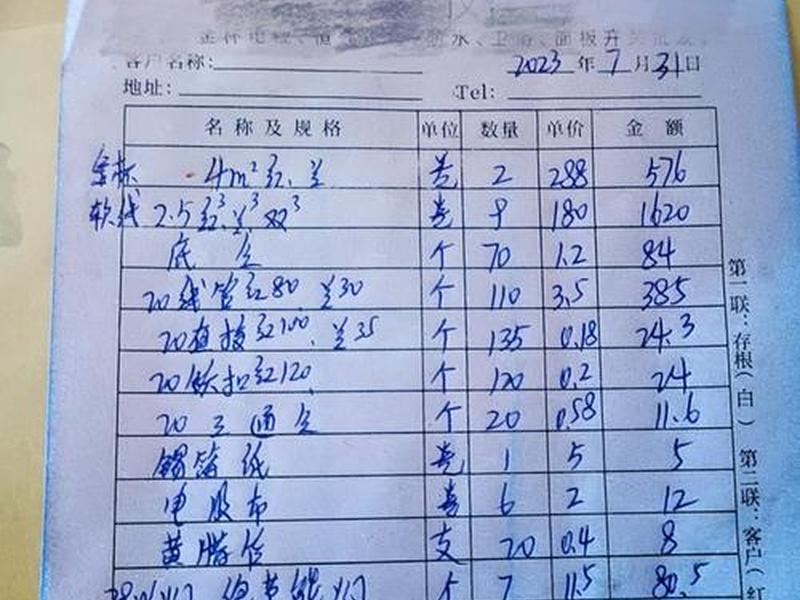 客户名称: 2023年7月31日
地址: Tel:
名称及规格 单位 数量 单价 金额
金杯 4m² 红、兰 卷 2 288 576
软线 2.5红³兰³双³ 卷 9 180 1620
底盒 个 70 1.2 84
20线管红80 兰30 个 110 3.5 385
20直接红100、兰35 个 135 0.18 24.3
20铁扣红120 个 120 0.2 24
20三通 个 20 0.58 11.6
锡箔纸 卷 1 5 5
电胶布 卷 6 2 12
黄腊管 支 20 0.4 8
个 7 11.5 80.5
第一联:存根(白)
第二联:客户(红